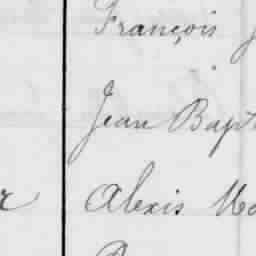 François
Jean Bapt
Alexis